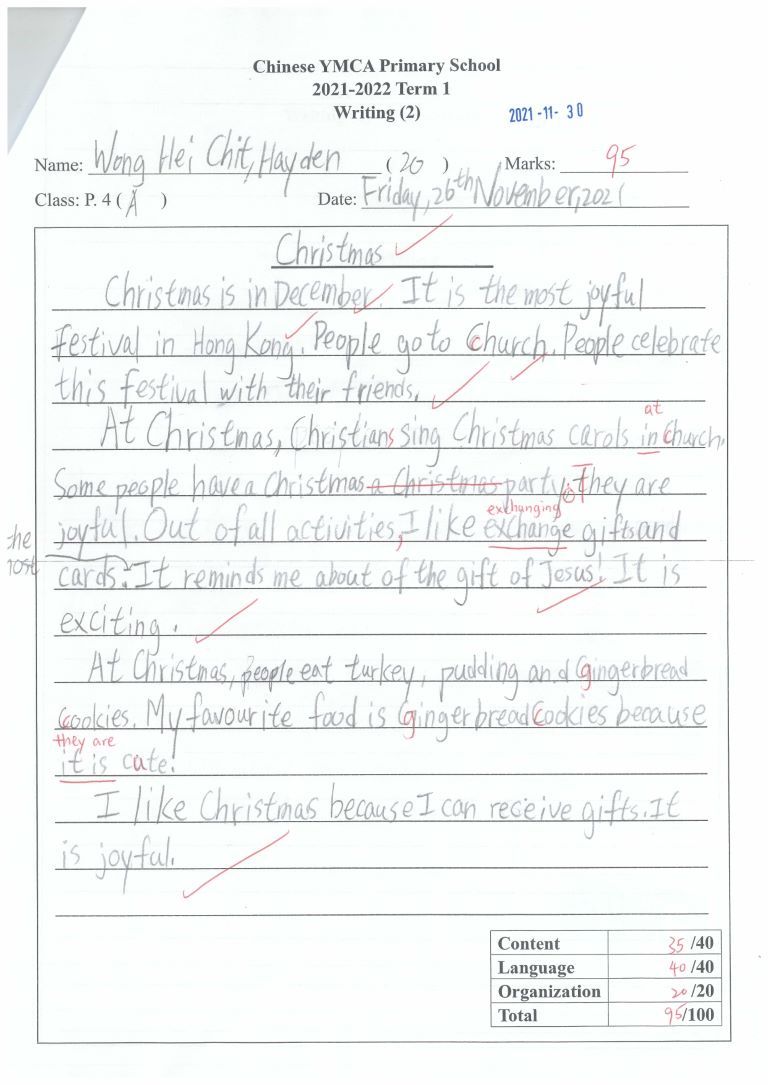 Chinese YMCA Primary School
2021-2022 Term 1
Writing (2)
2021-11-30
Name: Wong Hei Chit, Hayden (20)
Marks: 95
Class: P. 4 (A)
Date: Friday, 26th November, 2021
Christmas
Christmas is in December. It is the most joyful
festival in Hong Kong. People go to church. People celebrate
this festival with their friends.
at
At Christmas, Christians sing Christmas carols in church.
Some people have a Christmas a Christmas party. They are
exchanging
joyful. Out of all activities, I like exchange gifts and
the
most
cards. It reminds me about of the gift of Jesus! It is
exciting.
At Christmas, people eat turkey, pudding and gingerbread
cookies. My favourite food is gingerbread cookies because
they are
it is cute!
I like Christmas because I can receive gifts. It
is joyful.
Content 35/40
Language 40/40
Organization 20/20
Total 95/100